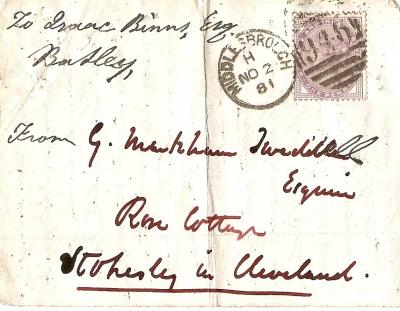 To Isaac Binns, Esq.
Batley,
MIDDLESBROUGH
H
NO 2
81
From G. Markham Tweddell
Esquire
Rose Cottage
Stokesley in Cleveland.